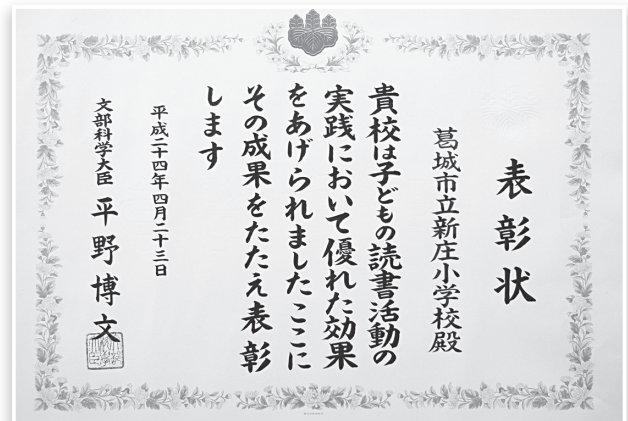 表彰状
葛城市立新庄小学校殿
貴校は子どもの読書活動の
実践において優れた効果
をあげられましたここに
その成果をたたえ表彰
します
平成二十四年四月二十三日
文部科学大臣 平野博文